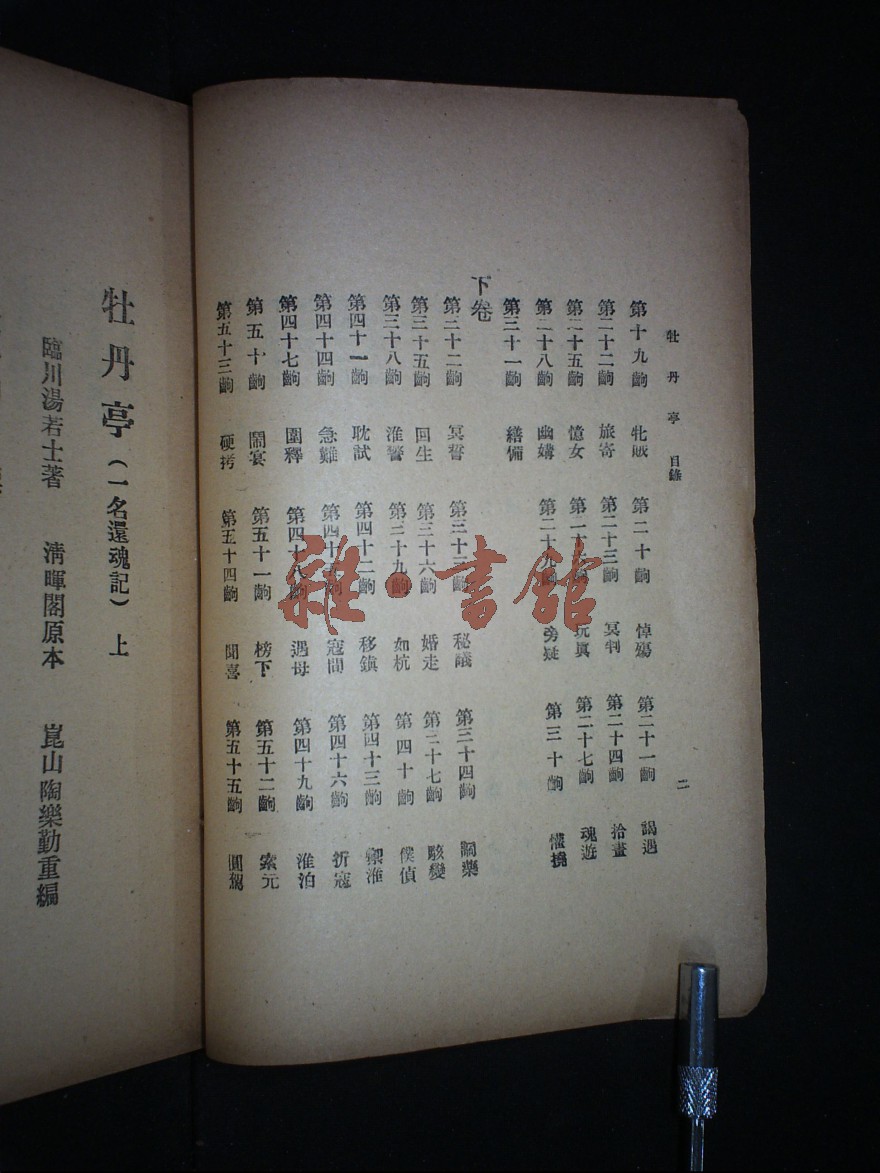 牡丹亭 目錄 二
第十九齣 牝賊 第二十齣 悼殤 第二十一齣 謁遇
第二十二齣 旅寄 第二十三齣 冥判 第二十四齣 拾畫
第二十五齣 憶女 第二十六齣 玩眞 第二十七齣 魂遊
第二十八齣 幽媾 第二十九齣 旁疑 第三十齣 懽撓
第三十一齣 繕備
下卷
第三十二齣 冥誓 第三十三齣 秘議 第三十四齣 詗藥
第三十五齣 回生 第三十六齣 婚走 第三十七齣 駭變
第三十八齣 淮警 第三十九齣 如杭 第四十齣 僕偵
第四十一齣 耽試 第四十二齣 移鎮 第四十三齣 禦淮
第四十四齣 急難 第四十五齣 寇間 第四十六齣 折寇
第四十七齣 圍釋 第四十八齣 遇母 第四十九齣 淮泊
第五十齣 鬧宴 第五十一齣 榜下 第五十二齣 索元
第五十三齣 硬拷 第五十四齣 聞喜 第五十五齣 圓駕
牡丹亭（一名還魂記）上
臨川湯若士著 淸暉閣原本 崑山陶樂勤重編
雜·書館